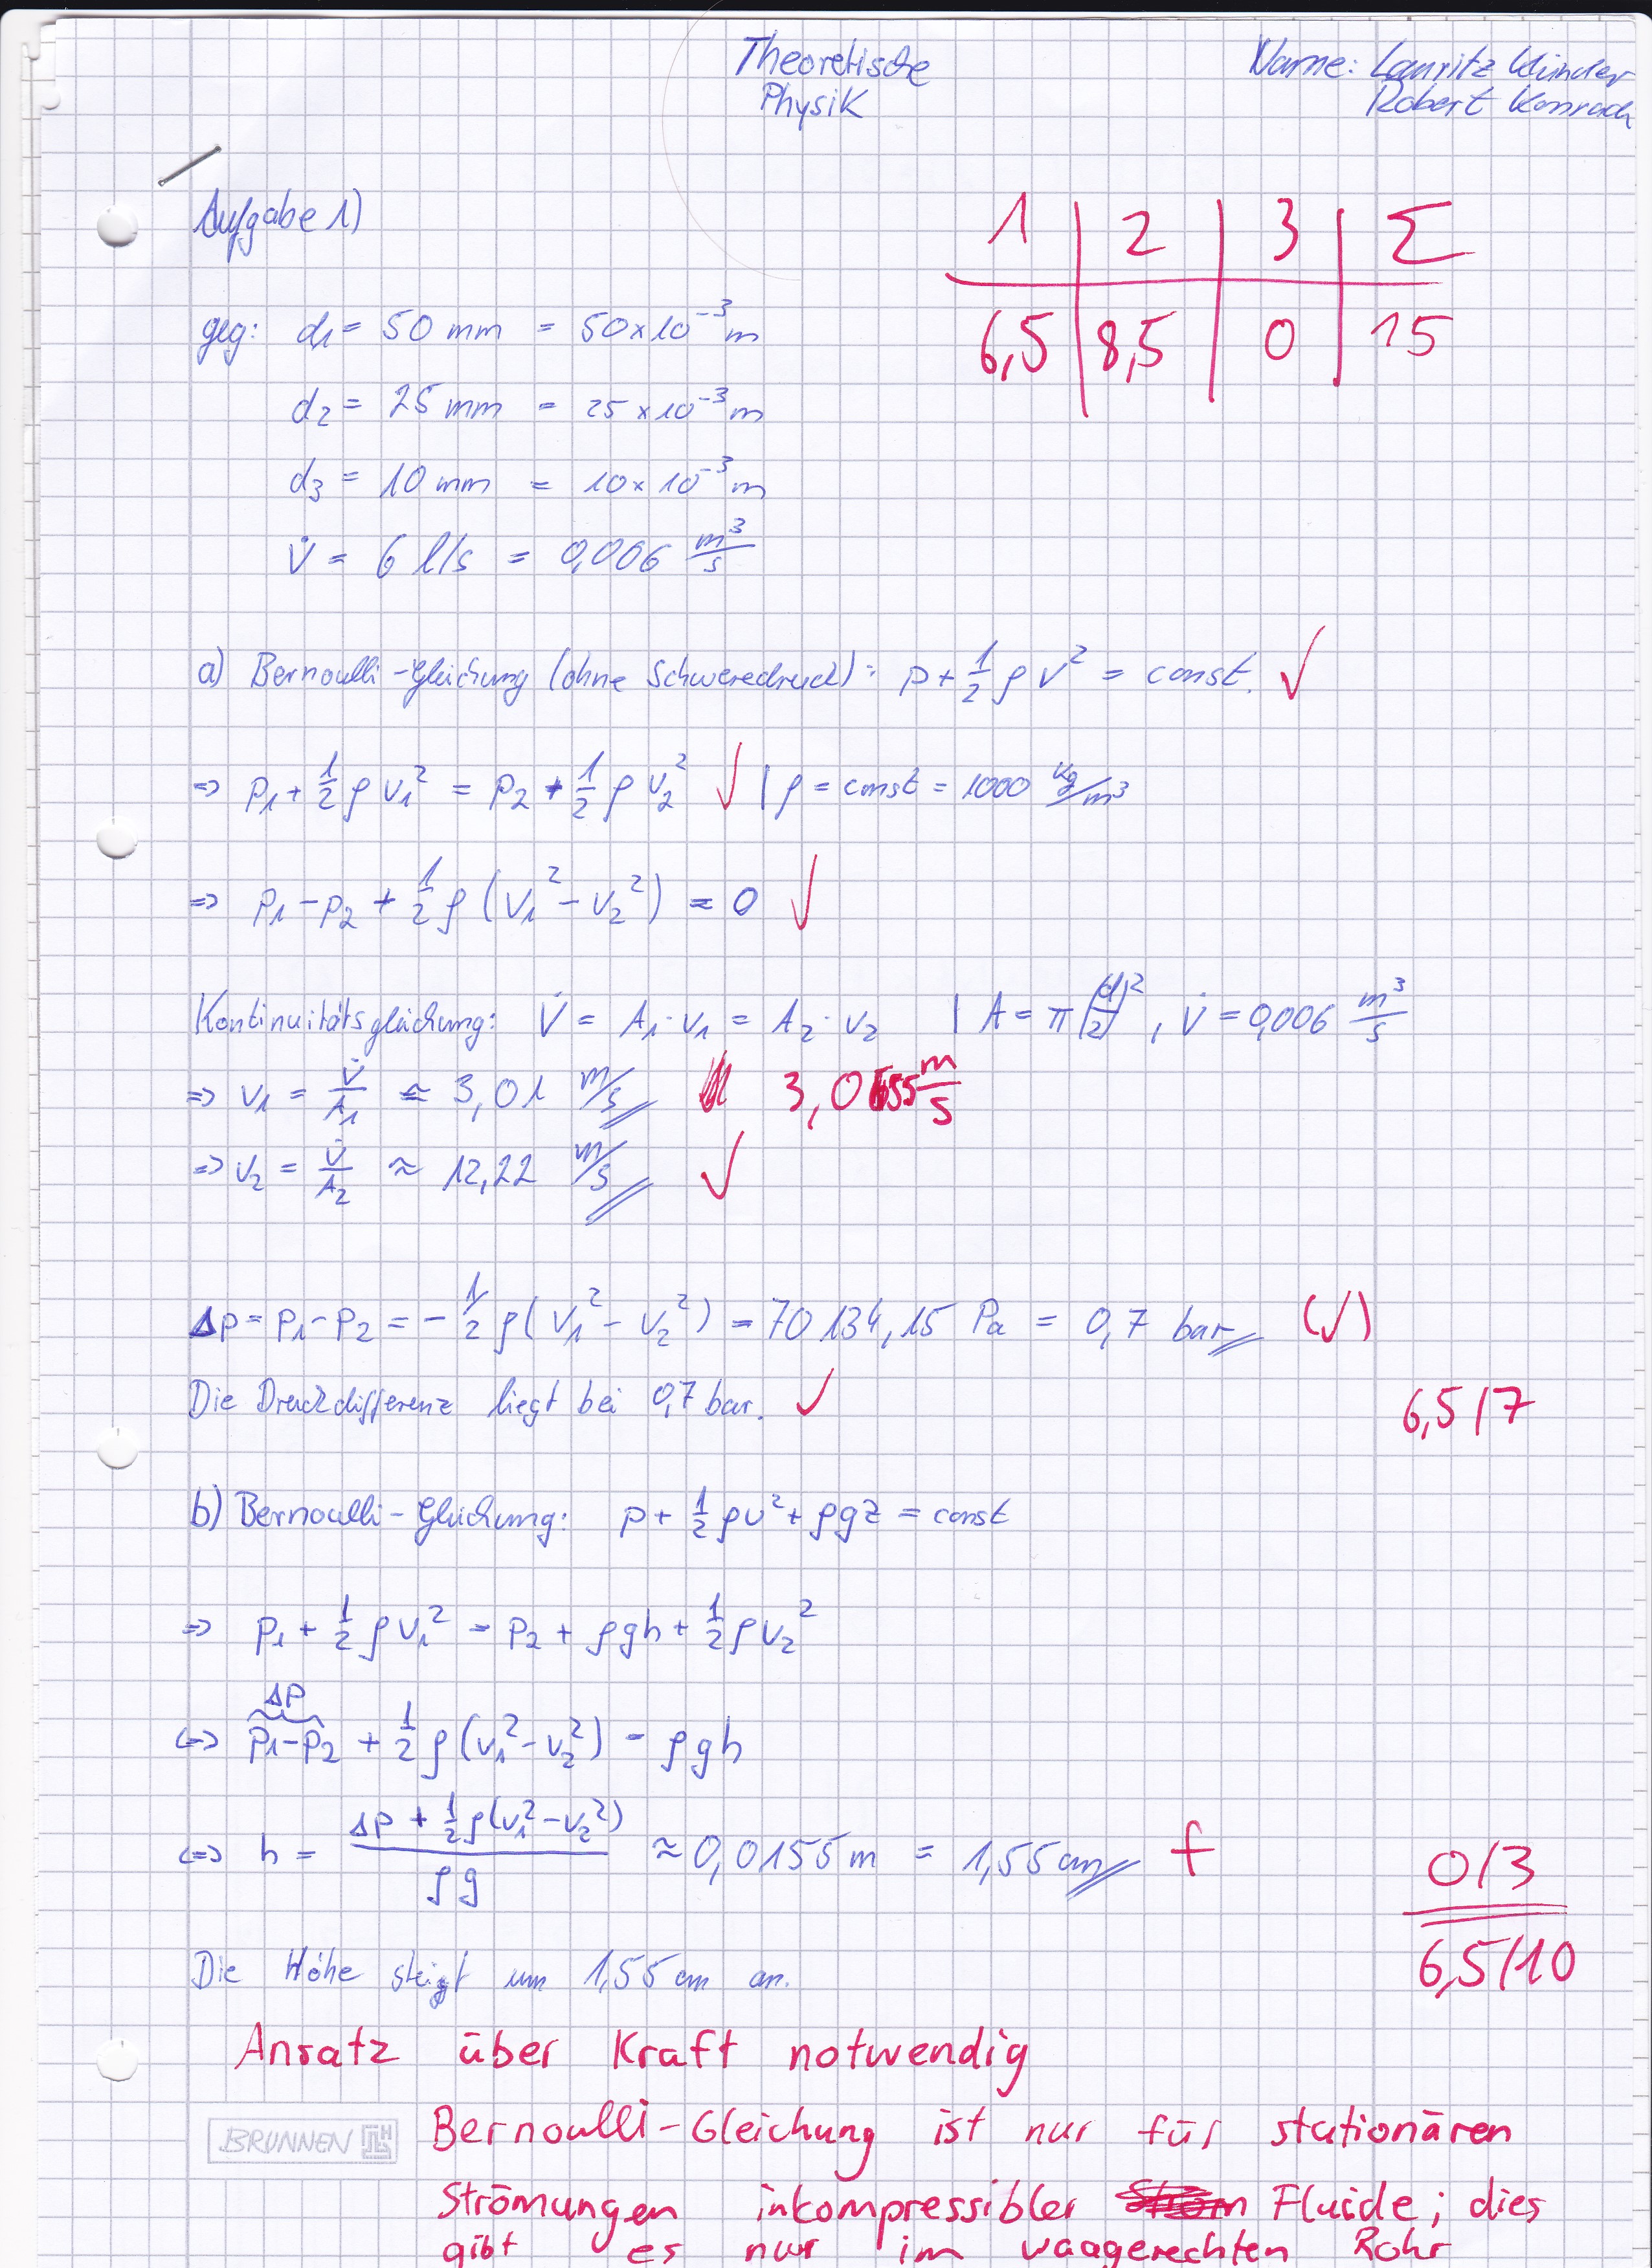 Theoretische
Physik
Name: Lauritz Winder
Robert Konrad
Aufgabe 1)
1 | 2 | 3 | Σ
6,5 | 8,5 | 0 | 15
geg: d₁ = 50 mm = 50×10⁻³ m
d₂ = 25 mm = 25×10⁻³ m
d₃ = 10 mm = 10×10⁻³ m
V̇ = 6 l/s = 0,006 m³/s
a) Bernoulli-Gleichung (ohne Schweredruck): p + 1/2 ρ v² = const. ✓
⇒ p₁ + 1/2 ρ v₁² = p₂ + 1/2 ρ v₂² ✓ | ρ = const = 1000 kg/m³
⇒ p₁ - p₂ + 1/2 ρ (v₁² - v₂²) = 0 ✓
Kontinuitätsgleichung: V̇ = A₁ · v₁ = A₂ · v₂ | A = π (d/2)², V̇ = 0,006 m³/s
⇒ v₁ = V̇/A₁ ≈ 3,01 m/s 3,055 m/s
⇒ v₂ = V̇/A₂ ≈ 12,22 m/s ✓
Δp = p₁ - p₂ = - 1/2 ρ (v₁² - v₂²) = 70134,15 Pa = 0,7 bar (✓)
Die Druckdifferenz liegt bei 0,7 bar. ✓
6,5/7
b) Bernoulli-Gleichung: p + 1/2 ρv² + ρgz = const
⇒ p₁ + 1/2 ρ v₁² = p₂ + ρgh + 1/2 ρ v₂²
Δp
⇔ p₁-p₂ + 1/2 ρ (v₁² - v₂²) = ρgh
⇔ h = (Δp + 1/2 ρ(v₁² - v₂²))/(ρg) ≈ 0,0155 m = 1,55 cm f
0/3
Die Höhe steigt um 1,55 cm an.
6,5/10
Ansatz über Kraft notwendig
BRUNNEN
Bernoulli-Gleichung ist nur für stationären
Strömungen inkompressibler Fluide; dies
gibt es nur im waagerechten Rohr